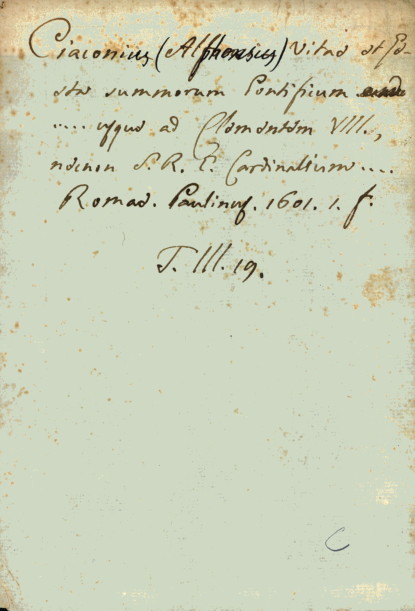 Ciaconius (Alphonsus) Vitae et Ge-
stae summorum Pontificum
.... usque ad Clementem VIII.,
necnon S. R. E. Cardinalium ....
Romae. Paulinus. 1601. 1. f.
T. III. 19.
C